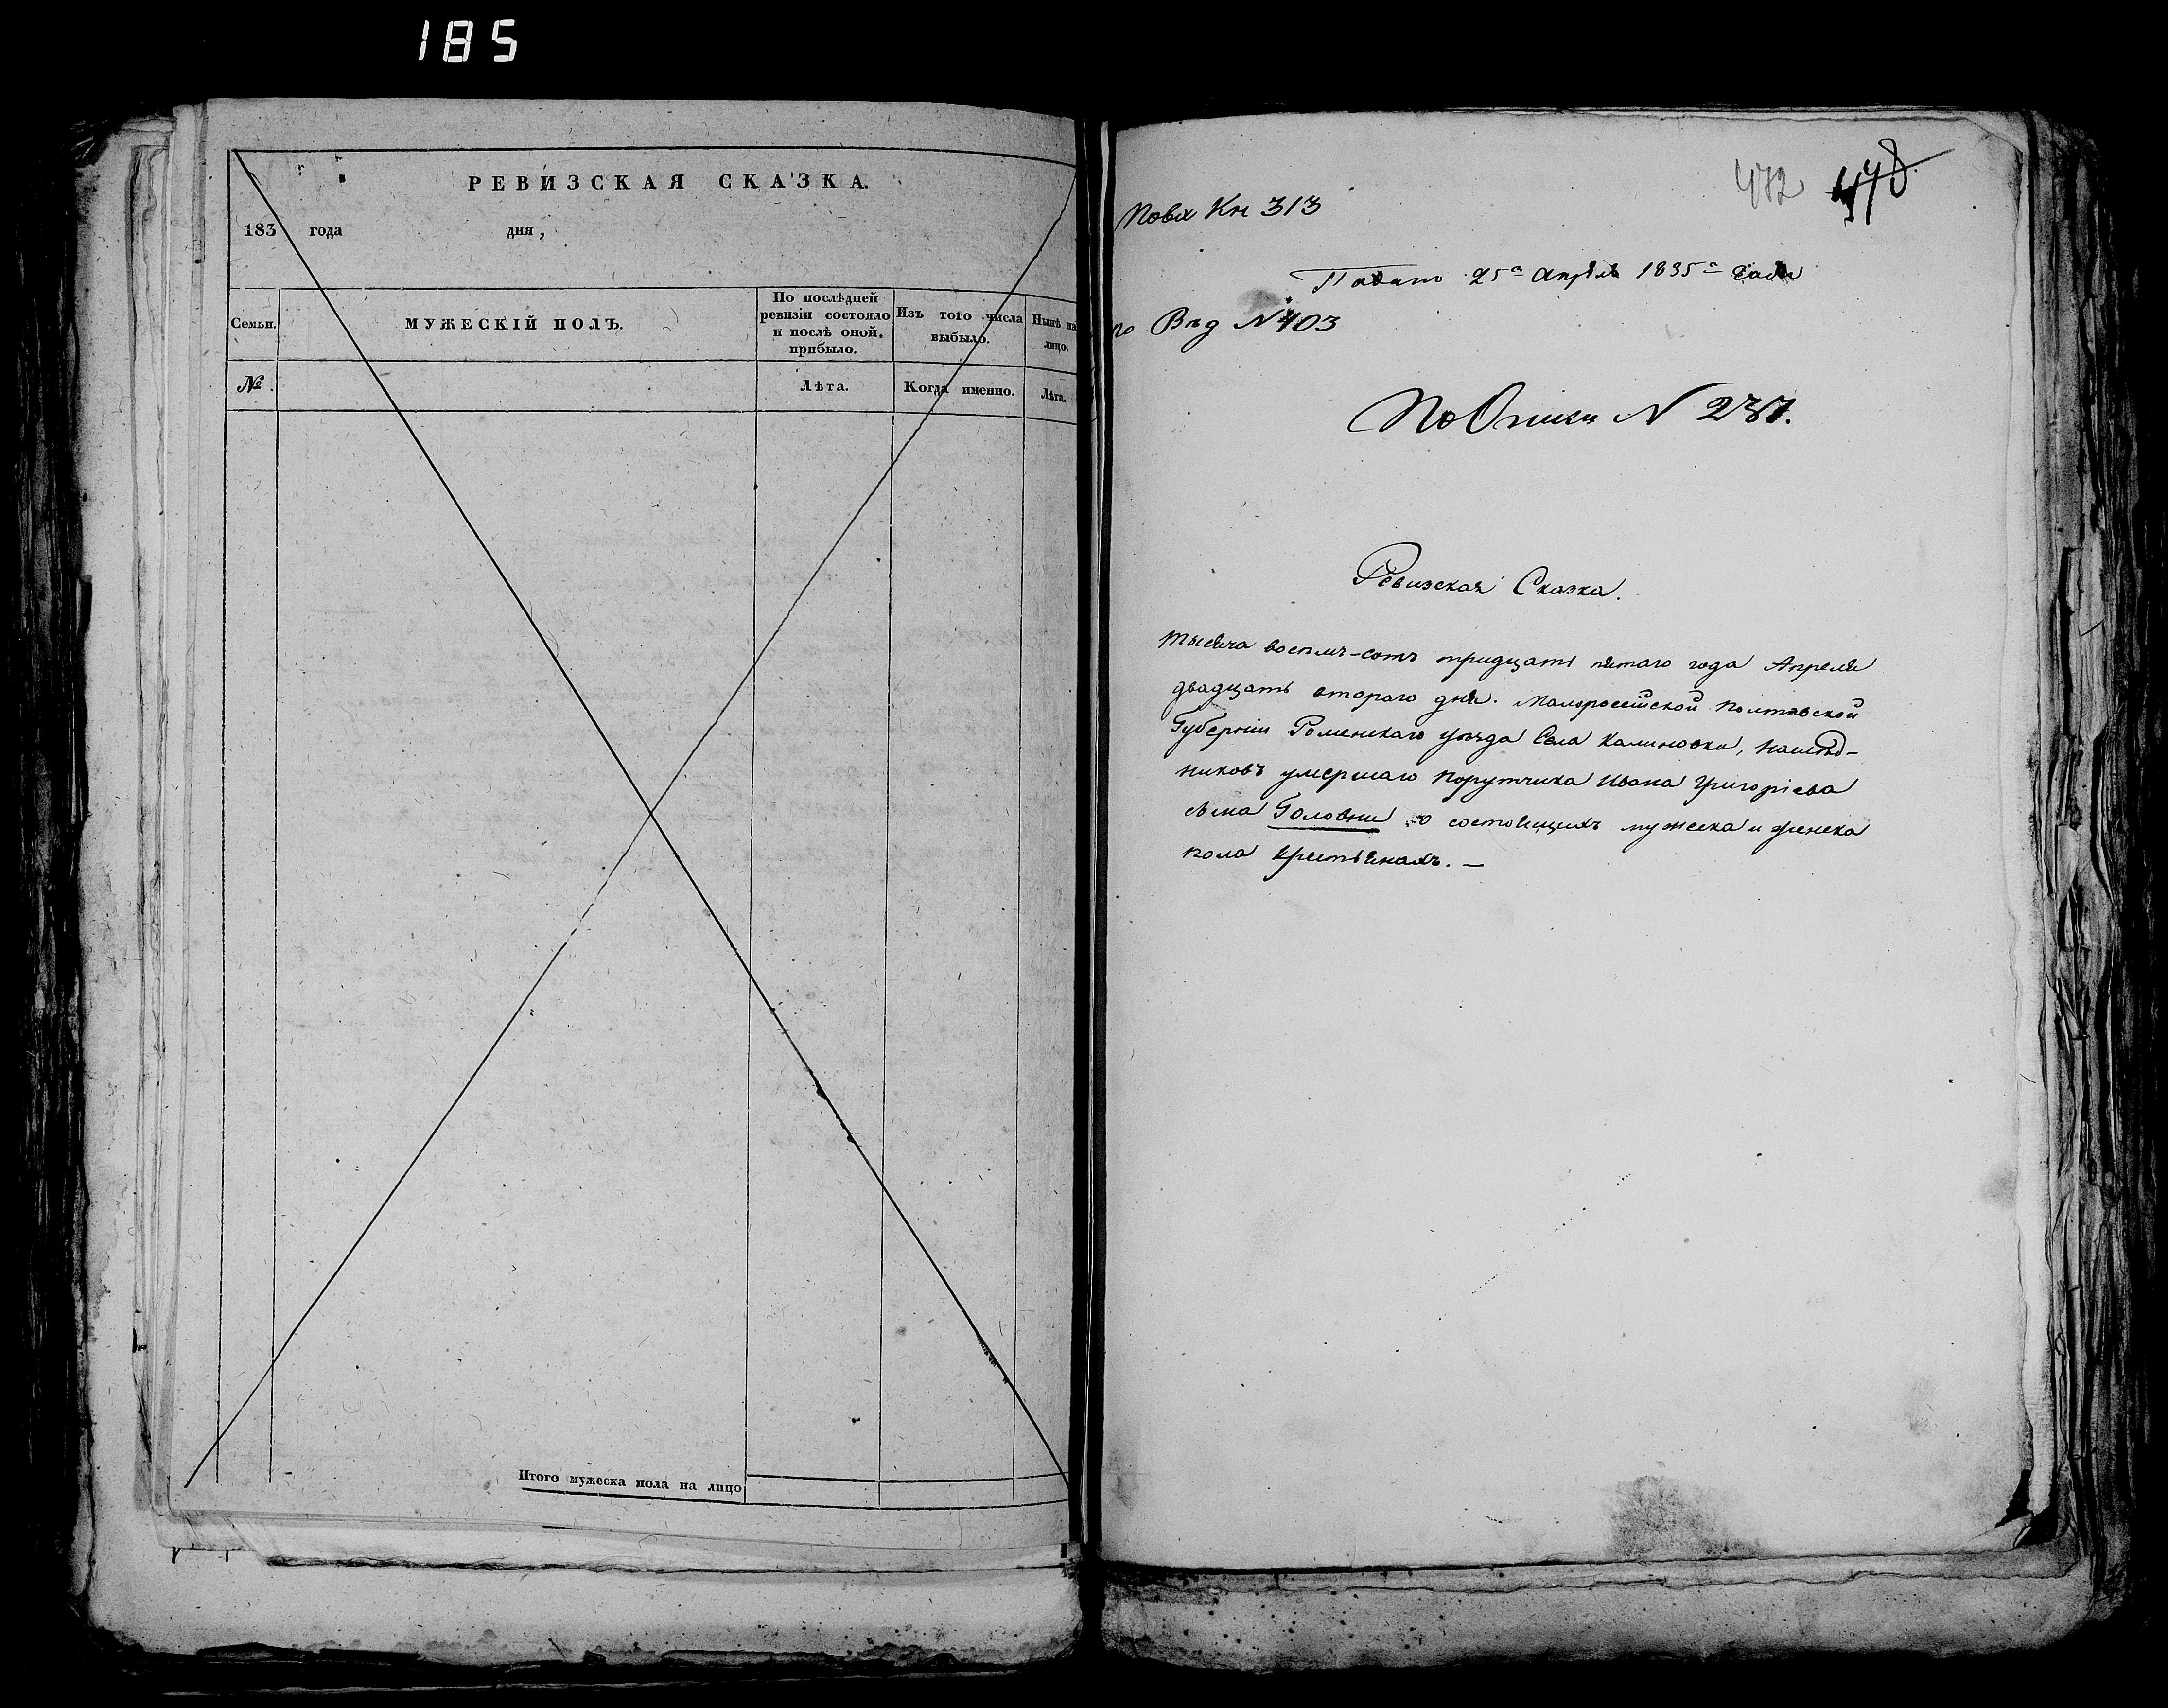 185
РЕВИЗСКАЯ СКАЗКА.
183 года дня,
Семьи.
МУЖЕСКІЙ ПОЛЪ.
По послѣдней
ревизіи состояло
и послѣ оной
прибыло.
Изъ того числа
выбыло.
Нынѣ на
лицо.
№
Лѣта.
Когда именно.
Лѣта.
Итого мужеска пола на лицо
472 478
По вх Кн 313
Подано 25го Апрѣля 1835го года
по Вѣд N 403
По Описи N 237.
Ревизская Сказка.
тысяча восемь-сотъ тридцать пятаго года Апреля
двадцать втораго дня. Малоросійской Полтавской
Губерніи Роменскаго уѣзда Села Калиновки, наслѣд-
никовъ умершаго порутчика Ивана Григоріева
сына Головни о состоящихъ мужеска и женска
пола крестьянахъ. —